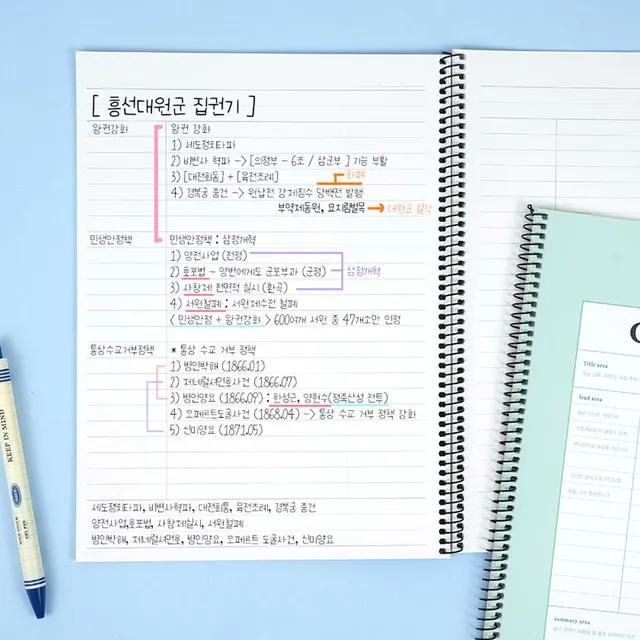 [ 흥선대원군 집권기 ]
왕권강화
왕권 강화
1) 세도정치타파
2) 비변사 혁파 → [의정부 - 6조 / 삼군부] 기능 부활
3) [대전회통] + [육전조례]
화폐
4) 경복궁 중건 → 원납전 강제징수 당백전 발행
부역제동원, 묘지림벌목 → 대원군 실각
민생안정책
민생안정책 : 삼정개혁
1) 양전사업 (전정)
2) 호포법 - 양반에게도 군포부과 (군정)
삼정개혁
3) 사창제 전면적 실시 (환곡)
4) 서원철폐 : 서원제수전 철폐
< 민생안정 + 왕권강화 > 600여개 서원 중 47개소만 인정
통상수교거부정책
* 통상 수교 거부 정책
1) 병인박해 (1866.01)
2) 제너럴셔먼호사건 (1866.07)
3) 병인양요 (1866.09) : 한성근, 양헌수(정족산성 전투)
4) 오페르트도굴사건 (1868.04) -> 통상 수교 거부 정책 강화
5) 신미양요 (1871.05)
세도정치타파, 비변사혁파, 대전회통, 육전조례, 경복궁 중건
양전사업,호포법, 사창제실시, 서원철폐
병인박해, 제너럴셔먼호, 병인양요, 오페르트 도굴사건, 신미양요
KEEP IN MIND
Title area
lead area
summary area